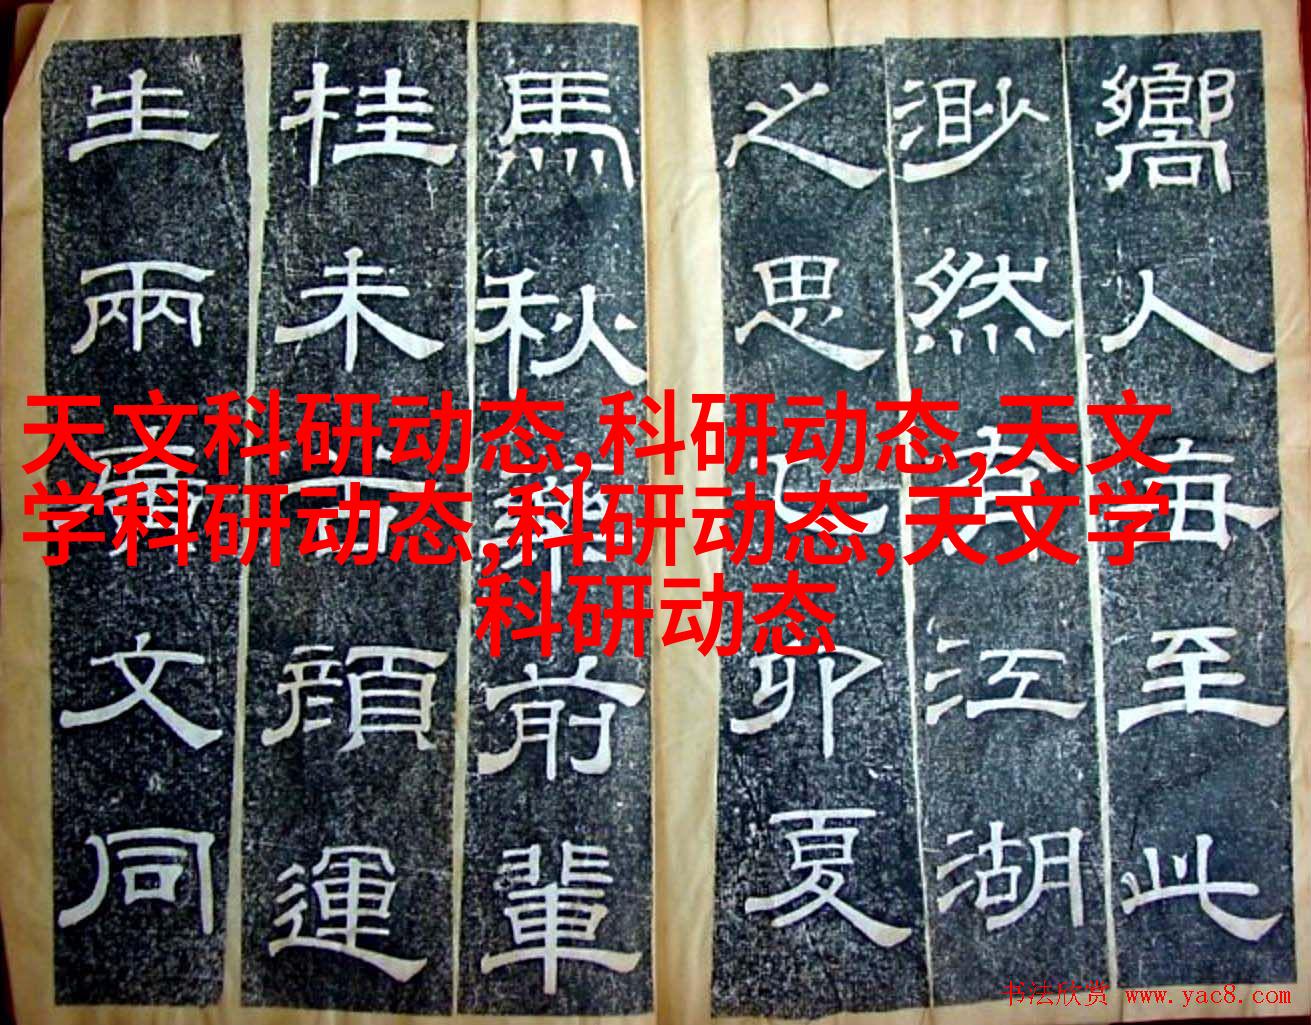 嚮人每至此
渺然有江湖
之思乙卯夏
馬秋藥前輩
桂未谷顏運
生兩廣文同
天文科研动态,科研动态,天文
学科研动态,科研动态,天文学
科研动态
书法欣赏 www.yac8.com